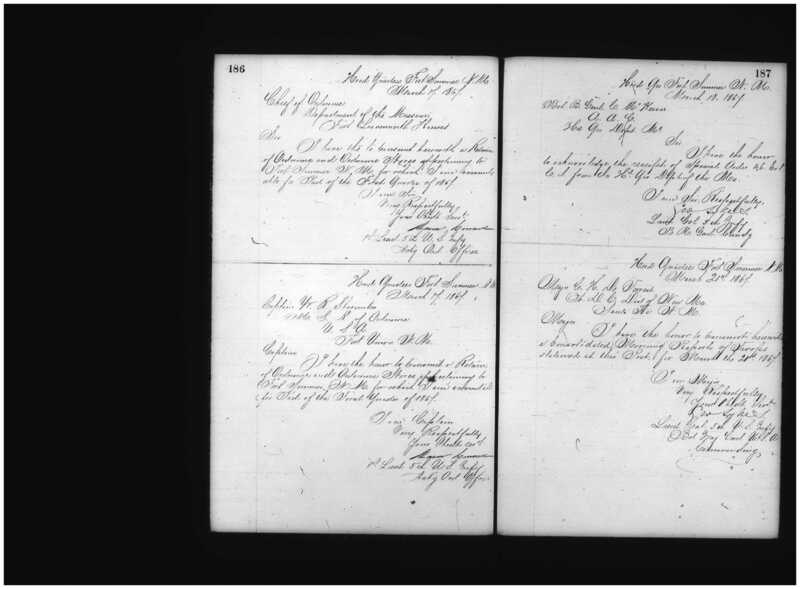 186
Head Quarters Fort Sumner N. Mo
March 17 1867
Chief of Ordnance
Department of the Missouri
Fort Leavenworth Kansas
Sir
I have the to transmit herewith a Return
of Ordnance and Ordnance Stores appertaining to
Fort Sumner N. Mo for which I am account
able for Part of the Quarter of 1867
I am Sir
Very Respectfully
Your Obdt Servt
1st Lieut 5th U. S. Infty
Actg Ord Officer
Head Quarters Fort Sumner N. M
March 17 1867
Captain W. R.
of Ordnance
U. S. A.
Fort Union N. Mo
Captain
I have the honor to transmit a Return
of Ordnance and Ordnance Stores appertaining to
Fort Sumner, N. Mo for which I am
for Part of the Quarter of 1867.
I am Captain
Very Respectfully
Your Obdt Servt
1st Lieut 5th U. S. Infty
Actg Ord Offr
187
Head Qrs Fort Sumner N. Mo.
March 18, 1867.
A. A. G.
Hd Qrs
Sir
I have the honor
to acknowledge the receipt of Special Order No
from the Hd Qrs Dept of the Mo.
I am Sir, Respectfully,
Lieut Col 5th Infy
Bt Genl Comdg
Head Quarters Fort Sumner N. Mo
March 21st 1867.
Major C. H. De Forrest
Dist of New Mo
Santa Fe N. M.
Major
I have the honor to transmit herewith
a Consolidated Morning Reports of Troops
stationed at this Post for March the 20th 1867
I am Major
Very Respectfully
Your Obdt Servt
Geo Sykes
Lieut Col 5th U. S. Infty
Bvt Maj Genl U. S. A.
Commanding